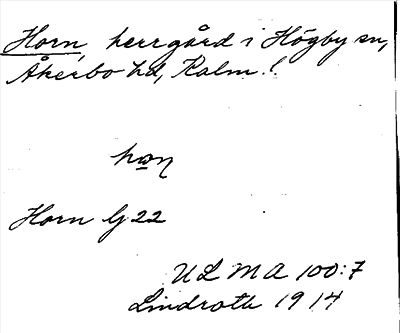 Horn, herrgård i Högby sn,
Åkerbo hd, Kalm. l.
Horn Gj 22
ULMA 100:7
Lindroth 1914